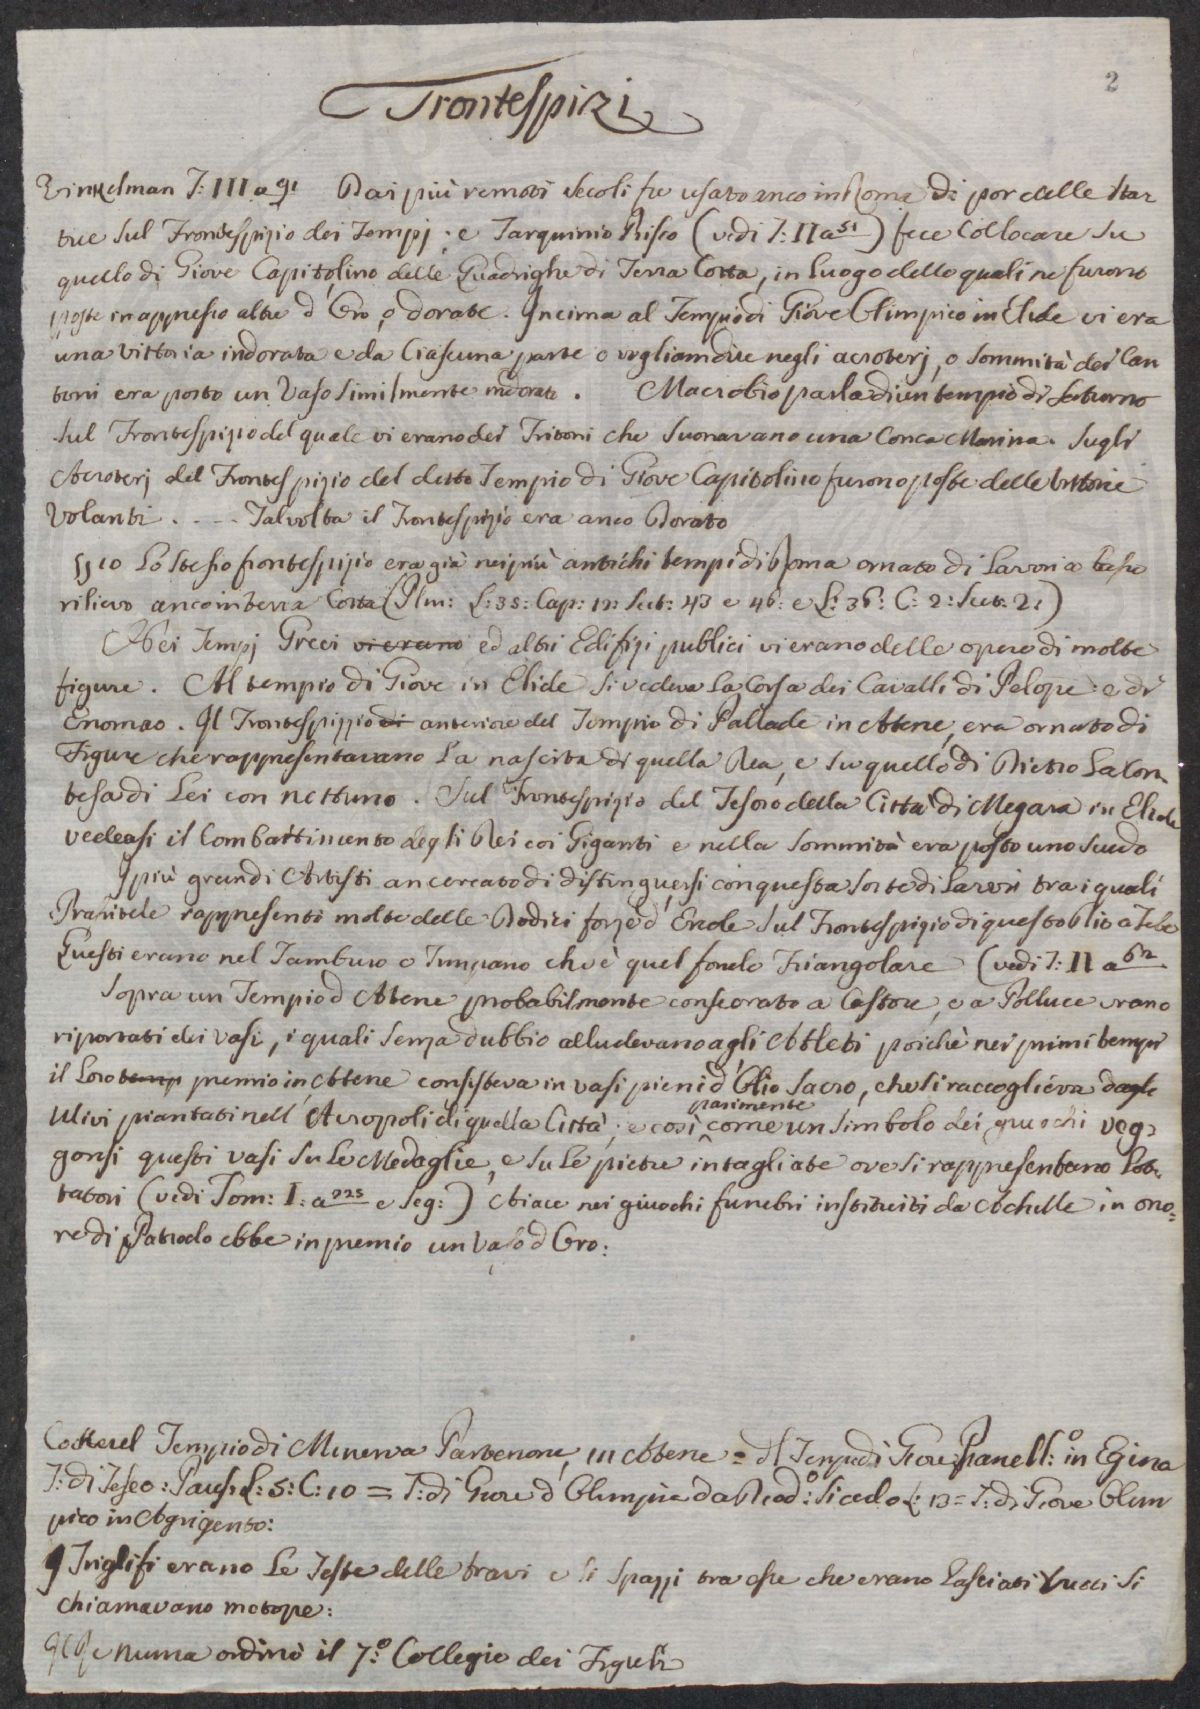 2
Frontespizi
Winkelman T: III a 91 Dai più remoti secoli fu usato anco in Roma di por delle sta=
tue sul Frontespizio dei Tempj; e Tarquinio Prisco (vedi T: II a 51) fece Collocare su
quello di Giove Capitolino delle Quadrighe di Terra Cotta, in luogo delle quali ne furono
poste in appresso altre d'Oro, o dorate. Incima al Tempio di Giove Olimpico in Elide vi era
una vittoria indorata e da Ciascuna parte o vogliam dire negli acroterj, o sommità dei Can
toni era posto un Vaso similmente indorato. Macrobio parla di un tempio di Saturno
sul Frontespizio del quale vi erano dei Tritoni che suonavano una Conca Marina. Sugli
Acroterj del Frontespizio del detto Tempio di Giove Capitolino furono poste delle Vittorie
Volanti . - - - Talvolta il Frontespizio era anco Dorato
§ 10 Lo stesso frontespizio era già nei più antichi tempi di Roma ornato di Lavori a basso
rilievo anco in terra Cotta (Plin: L: 35: Cap: 12: Sect: 43 e 46: e L: 36: C: 2: Sect: 2:)
Nei Tempj Greci vi erano ed altri Edifizi publici vi erano delle opere di molte
figure. Al tempio di Giove in Elide si vedeva la Corsa dei Cavalli di Pelope e di
Enomao. Il Frontespizio di anteriore del Tempio di Pallade in Atene, era ornato di
Figure che rappresentavano La nascita di quella Dea, e su quello di Dietro La Con
tesa di Lei con nettuno. Sul Frontespizio del Tesoro della Città di Megara in Elide
vedeasi il Combattimento degli Dei coi Giganti e nella sommità era posto uno scudo
I più grandi Artisti an cercato di distinguersi con questa sorte di Lavori tra i quali
Prasitele rappresentò molte delle Dodici forze d'Ercole sul Frontespizio di questo blio a Tebe
Questi erano nel Tamburo o Timpano ch'è quel fondo Triangolare (vedi T: II a 62
Sopra un Tempio d'Atene probabilmente consecrato a Castore, e a Polluce erano
riportati dei vasi, i quali senza dubbio alludevano agli Atleti poichè nei primi tempi
il Loro temp premio in Atene consisteva in vasi pieni d'Olio Sacro, che si raccoglieva dagle
Ulivi piantati nell'Acropoli di quella Città; e così parimente come un simbolo dei giuochi veg=
gonsi questi vasi su Le Medaglie, e su Le pietre intagliate ove si rappresentano Lot=
tatori (vedi Tom: I: a 225 e seg:) Aiace nei giuochi funebri instituiti da Achille in ono=
re di Patroclo ebbe in premio un Vaso d'Oro:
Cokerel Tempio di Minerva Partenone, in Atene = Il Tempio di Giove Panell:º in Egina
T: di Teseo: Paus: L: 5: C: 10 = T: di Giove d'Olimpia da Diod:º Siculo L: 13 = T: di Giove Olim
pico in Agrigento:
I Triglifi erano Le Teste delle travi e li spazzi tra esse che erano Lasciati Vuoti si
chiamavano metope:
Numa ordinò il 7:º Collegio dei Figuli